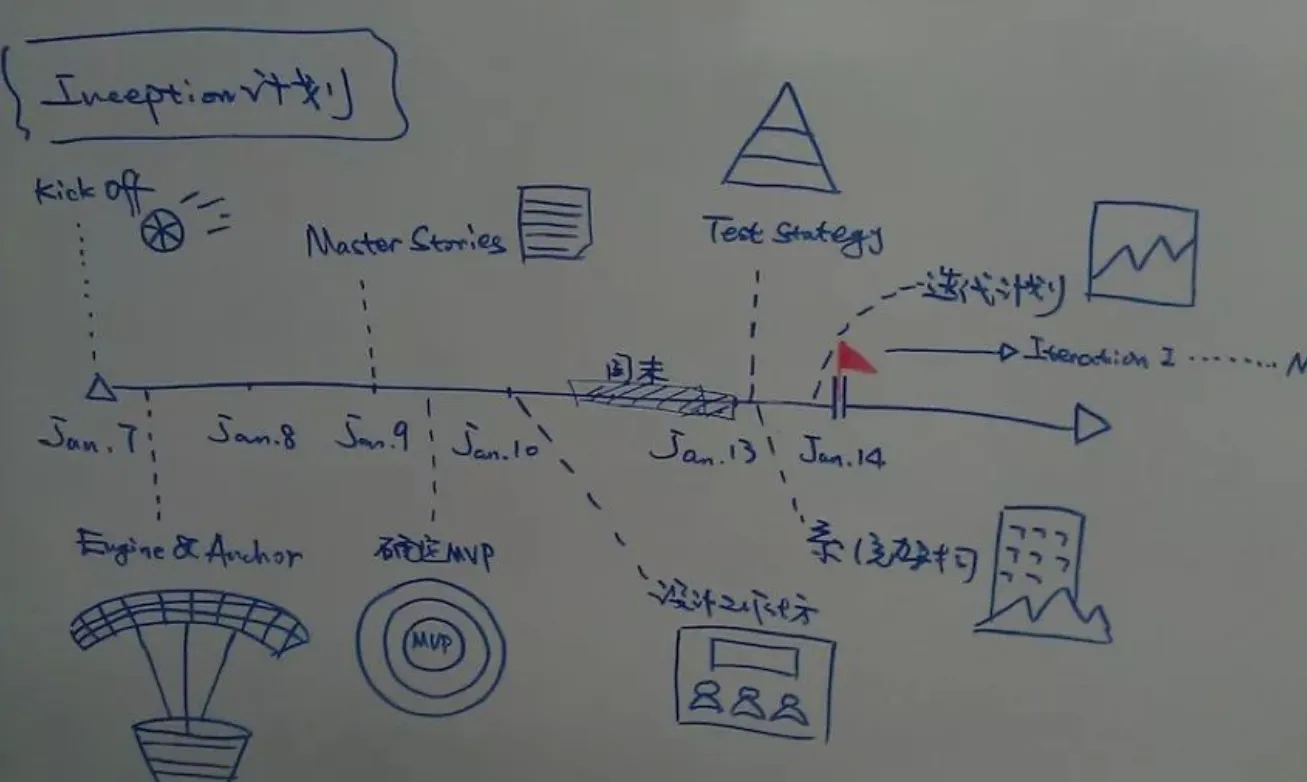 Inception计划
Kick Off
Master Stories
Test Stategy
迭代计划
周末
Iteration 1 ........ N
Jan.7
Jan.8
Jan.9
Jan.10
Jan.13
Jan.14
Engine & Anchor
确定MVP
MVP
设计工作坊
系统架构